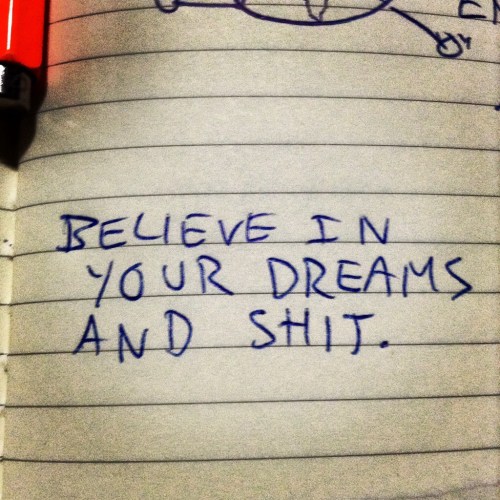 BELIEVE IN
YOUR DREAMS
AND SHIT.